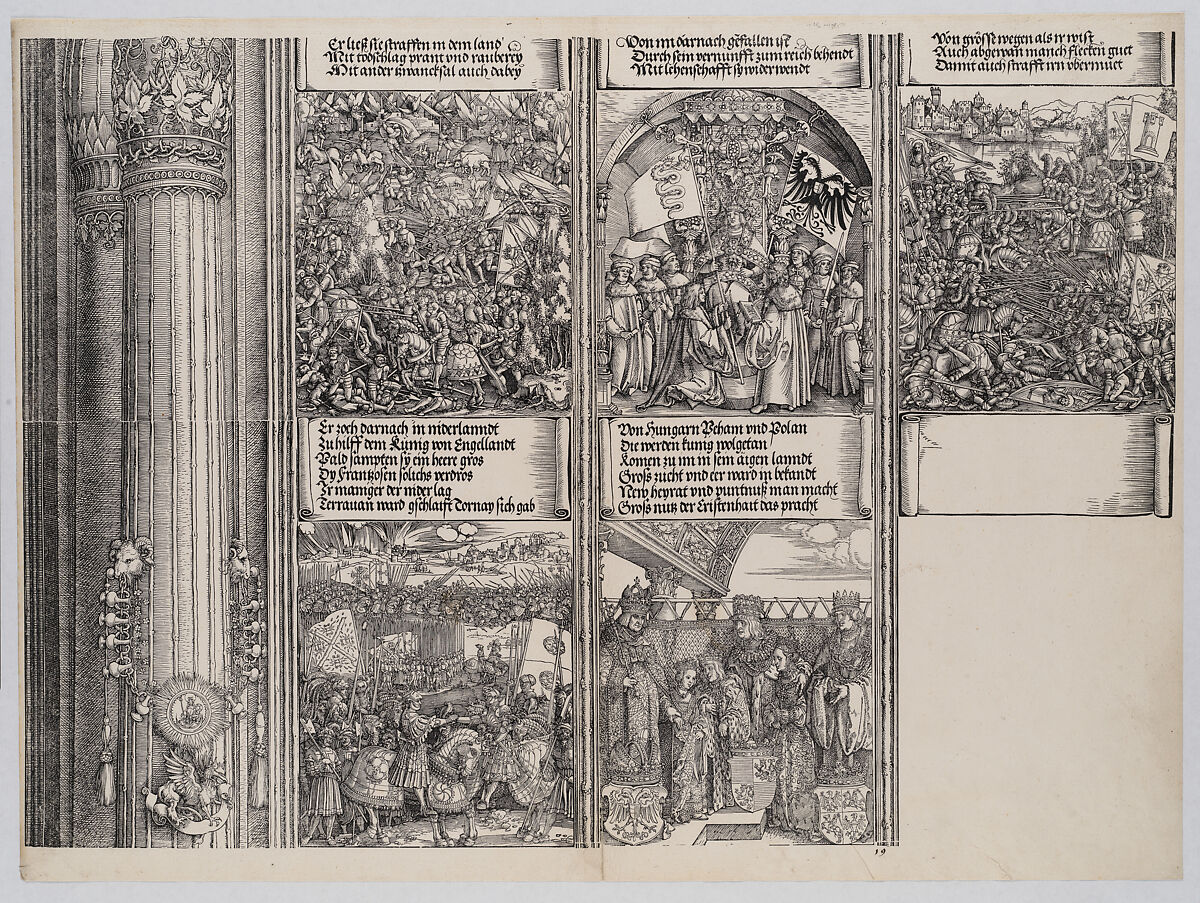 Er ließ sie straffen in dem land
Mit todschlag prant vnd rauberey
Mit ander zwancksal auch dabey
Von im darnach gefallen ist
Durch sein vernunfft zum reich behendt
Mit lehenschafft sy wider wendt
Von grösse wegen als ir wist
Auch abgewan manch flecken guet
Damit auch strafft irn vbermuet
Er zoch darnach in niderlanndt
Zu hilff dem Künig von Engellandt
Bald sampten sy ein heere gros
Dy Frantzosen solichs verdros
Ir maniger der nider lag
Terrauan ward gschlaifft Tornay sich gab
Von Hungarn Beham vnd Polan
Die werden kunig wolgetan
Komen zu im in sein aigen lanndt
Gross zucht vnd eer ward in bekandt
New heyrat vnd puntnuß man macht
Gross nutz der Cristenhait das pracht
19